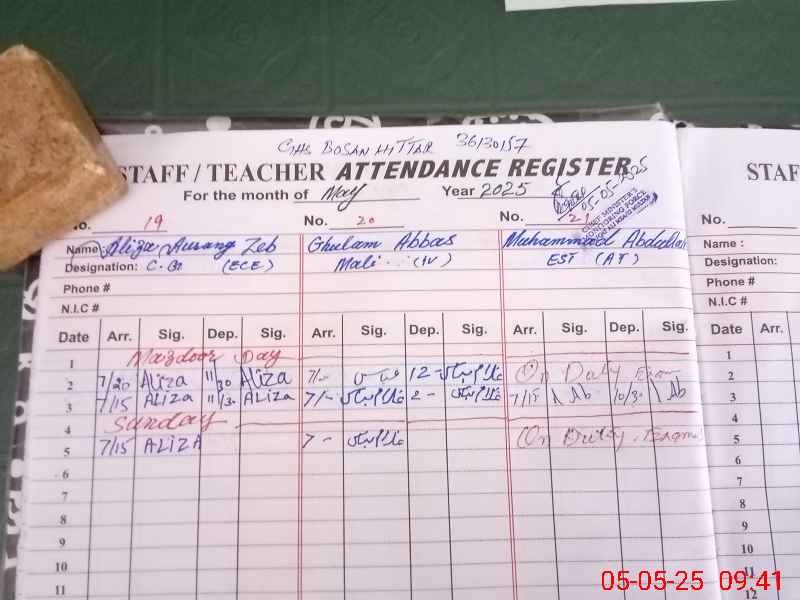 GHS BOSAN HITTAR 36130157
STAFF / TEACHER ATTENDANCE REGISTER
For the month of May Year 2025
05-05-2025
CHIEF MINISTER'S
MONITORING FORCE
No. 19 No. 20 No. 21
Name: Aliza Aurang Zeb Ghulam Abbas Muhammad Abdullah
Designation: C.G (ECE) Mali (IV) EST (AT)
Phone #
N.I.C #
Date Arr. Sig. Dep. Sig. Arr. Sig. Dep. Sig. Arr. Sig. Dep. Sig.
1 Mazdoor Day
2 7/20 Aliza 11/30 Aliza 7/- عباس 12- غلام عباس On Duty Exam
3 7/15 ALIZA 11/30 ALIZA 7/- غلام عباس 2- غلام عباس 7/15 Ab 10/30 Ab
4 Sunday
5 7/15 ALIZA 7- غلام عباس On Duty Exam
6
7
8
9
10
11
STAF
No.
Name :
Designation:
Phone #
N.I.C #
Date Arr.
1
2
3
4
5
6
7
8
9
10
11
12
05-05-25 09:41